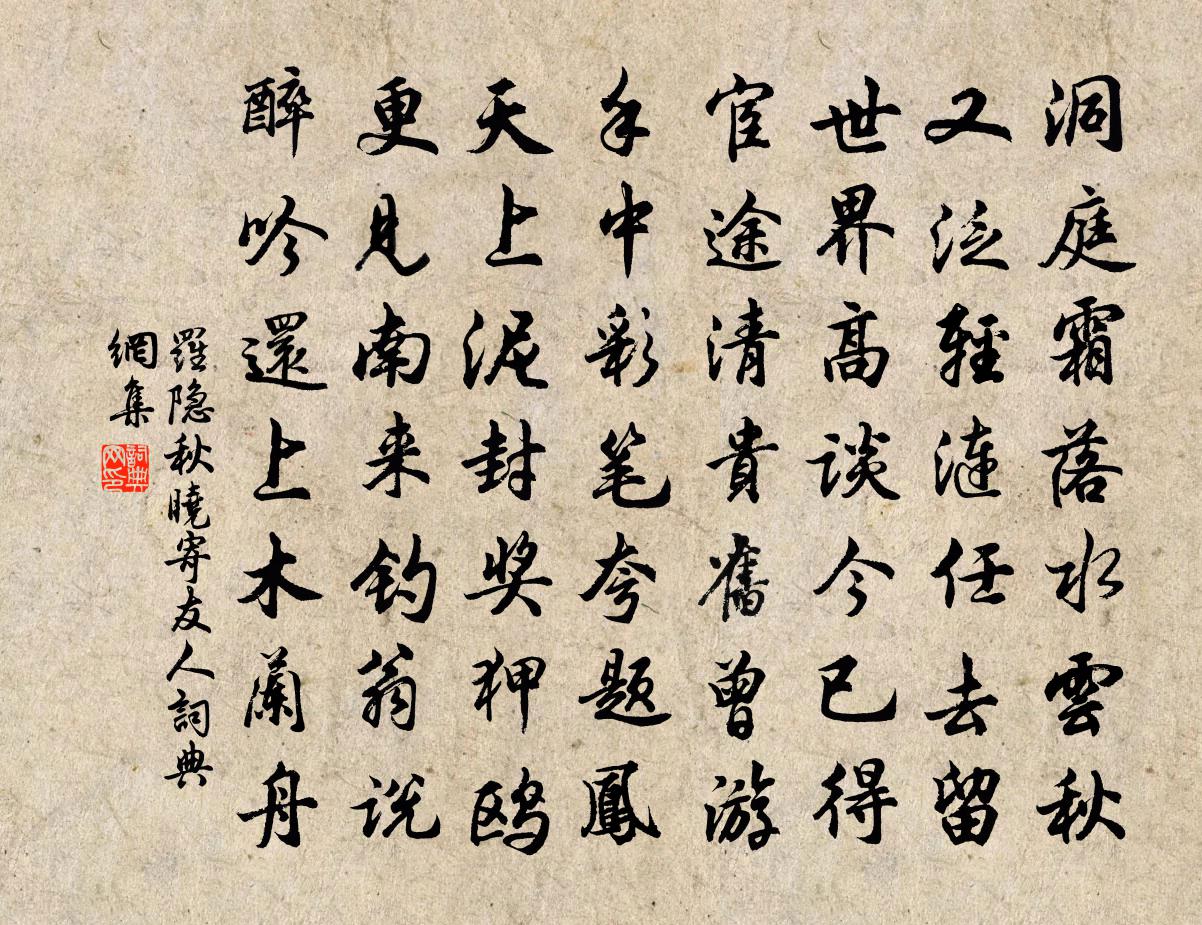 洞庭霜落水雲秋
又泛輕漣任去留
世界高談今已得
宦途清貴舊曾游
手中彩笔夸題鳳
天上泥封奖狎鸥
更見南来釣翁説
醉吟還上木蘭舟
羅隐秋曉寄友人詞典
網集
詞典
网印